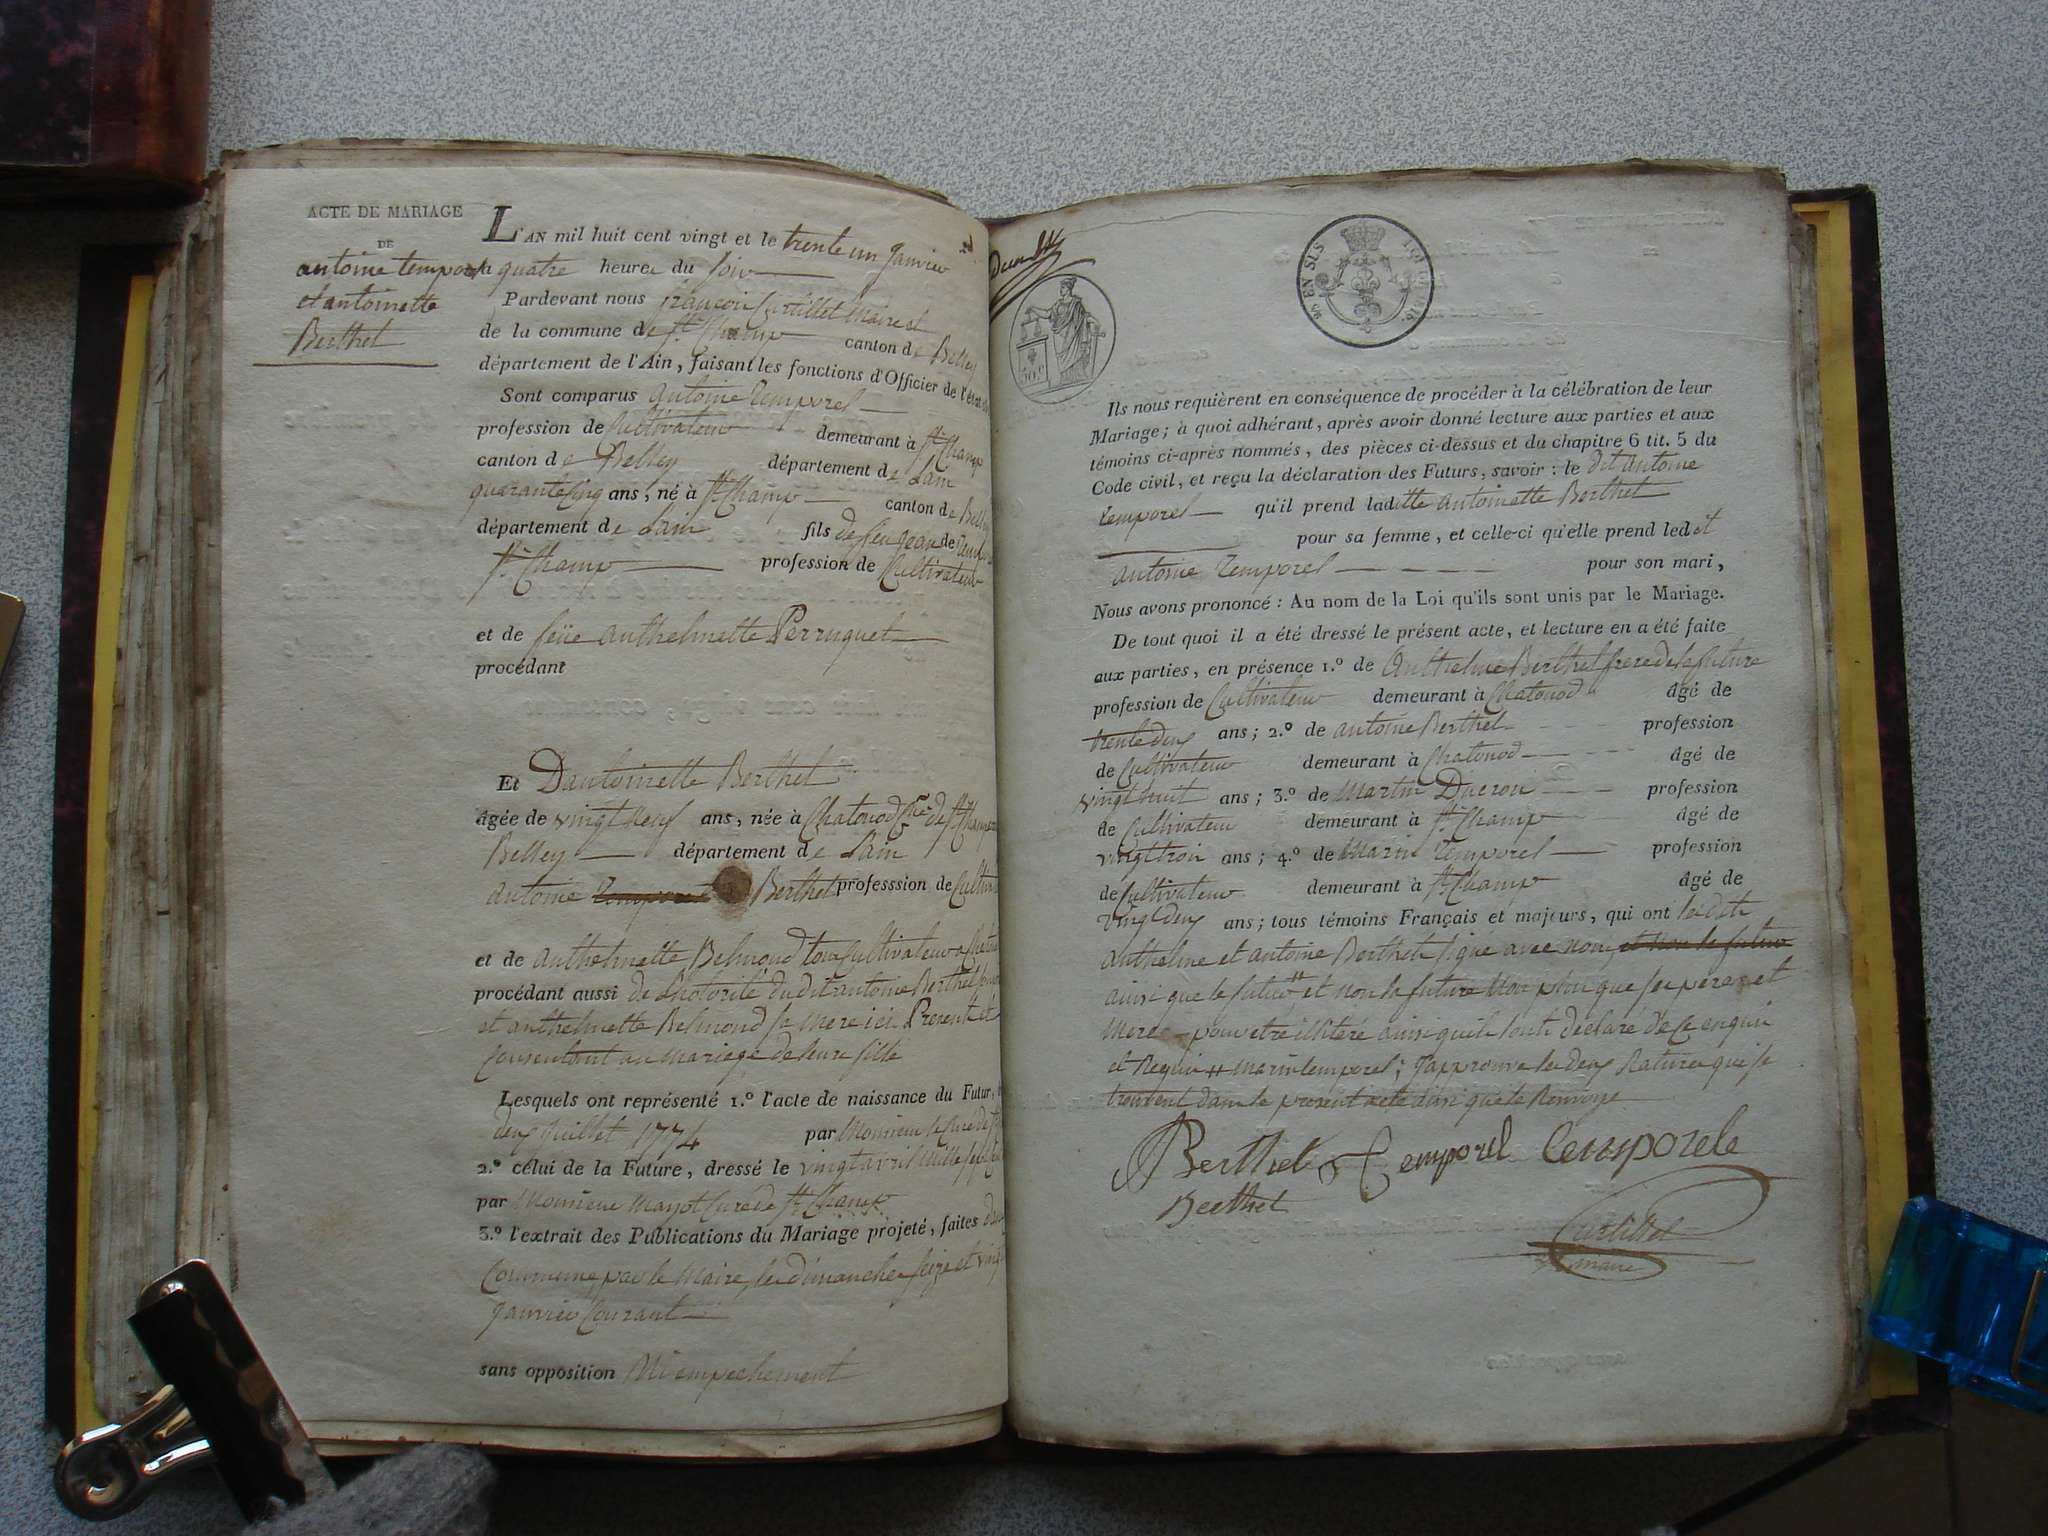 ACTE DE MARIAGE
DE
antoine temporel
et antoinette
Berthet
L'AN mil huit cent vingt et le trente un Janvier
à quatre heures du soir
Pardevant nous françois Curtillet Maire
de la commune de St. Champ canton de Belley
département de l'Ain, faisant les fonctions d'Officier de l'état
Sont comparus Antoine Temporel
profession de Cultivateur demeurant à St. Champ
canton de Belley département de Lain
quarante cinq ans, né à St. Champ canton de Belley
département de Lain fils de feu Jean de
St. Champ profession de Cultivateur
et de feüe anthelmette Perruquet
procédant
Et Dantoinette Berthet
âgée de vingt neuf ans, née à Chatonod de St. Champ
Belley département de Lain
antoine Temporel Berthet professsion de
et de anthelmette Belmond tous Cultivateur a
procédant aussi de Lhotorité dudit antoine Berthet
et anthelmette Belmond sa mere ici Present et
Consentant au mariage de leur fille
Lesquels ont représenté 1.º l'acte de naissance du Futur,
deux Juillet 1774 par Monsieur le Curé de
2.º celui de la Future, dressé le vingt avril mille sept
par Monsieur Mayot Curé de St. Champ
3.º l'extrait des Publications du Mariage projeté, faites
Commune par le Maire, les dimanches seize et
Janvier Courant
sans opposition Ni empechement
EN SUS
Ils nous requièrent en conséquence de procéder à la célébration de leur
Mariage; à quoi adhérant, après avoir donné lecture aux parties et aux
témoins ci-après nommés, des pièces ci-dessus et du chapitre 6 tit. 5 du
Code civil, et reçu la déclaration des Futurs, savoir: le dit antoine
temporel qu'il prend laditte antoinette Berthet
pour sa femme, et celle-ci qu'elle prend ledit
antoine Temporel pour son mari,
Nous avons prononcé: Au nom de la Loi qu'ils sont unis par le Mariage.
De tout quoi il a été dressé le présent acte, et lecture en a été faite
aux parties, en présence 1.º de Anthelme Berthet frere de la future
profession de Cultivateur demeurant à Chatonod âgé de
trente deux ans; 2.º de antoine Berthet profession
de Cultivateur demeurant à Chatonod âgé de
vingt huit ans; 3.º de Martin Ducroi profession
de Cultivateur demeurant à St. Champ âgé de
vingt troir ans; 4.º de Marin Temporel profession
de Cultivateur demeurant à St. Champ âgé de
vingt deux ans; tous témoins Français et majeurs, qui ont lesdits
anthelme et antoine Berthet signé avec nous, et non le futur
ainsi que le futur # et non la future Non plus que ses peres et
Meres pour etre illitere ainsi quils lont declaré de ce enquis
et Requis # marin temporel; J'approuve les deux Ratures qui se
trouvent dans le present acte ainsi que le Renvoye
Berthet Temporel Temporele
Berthet
Curtillet
maire